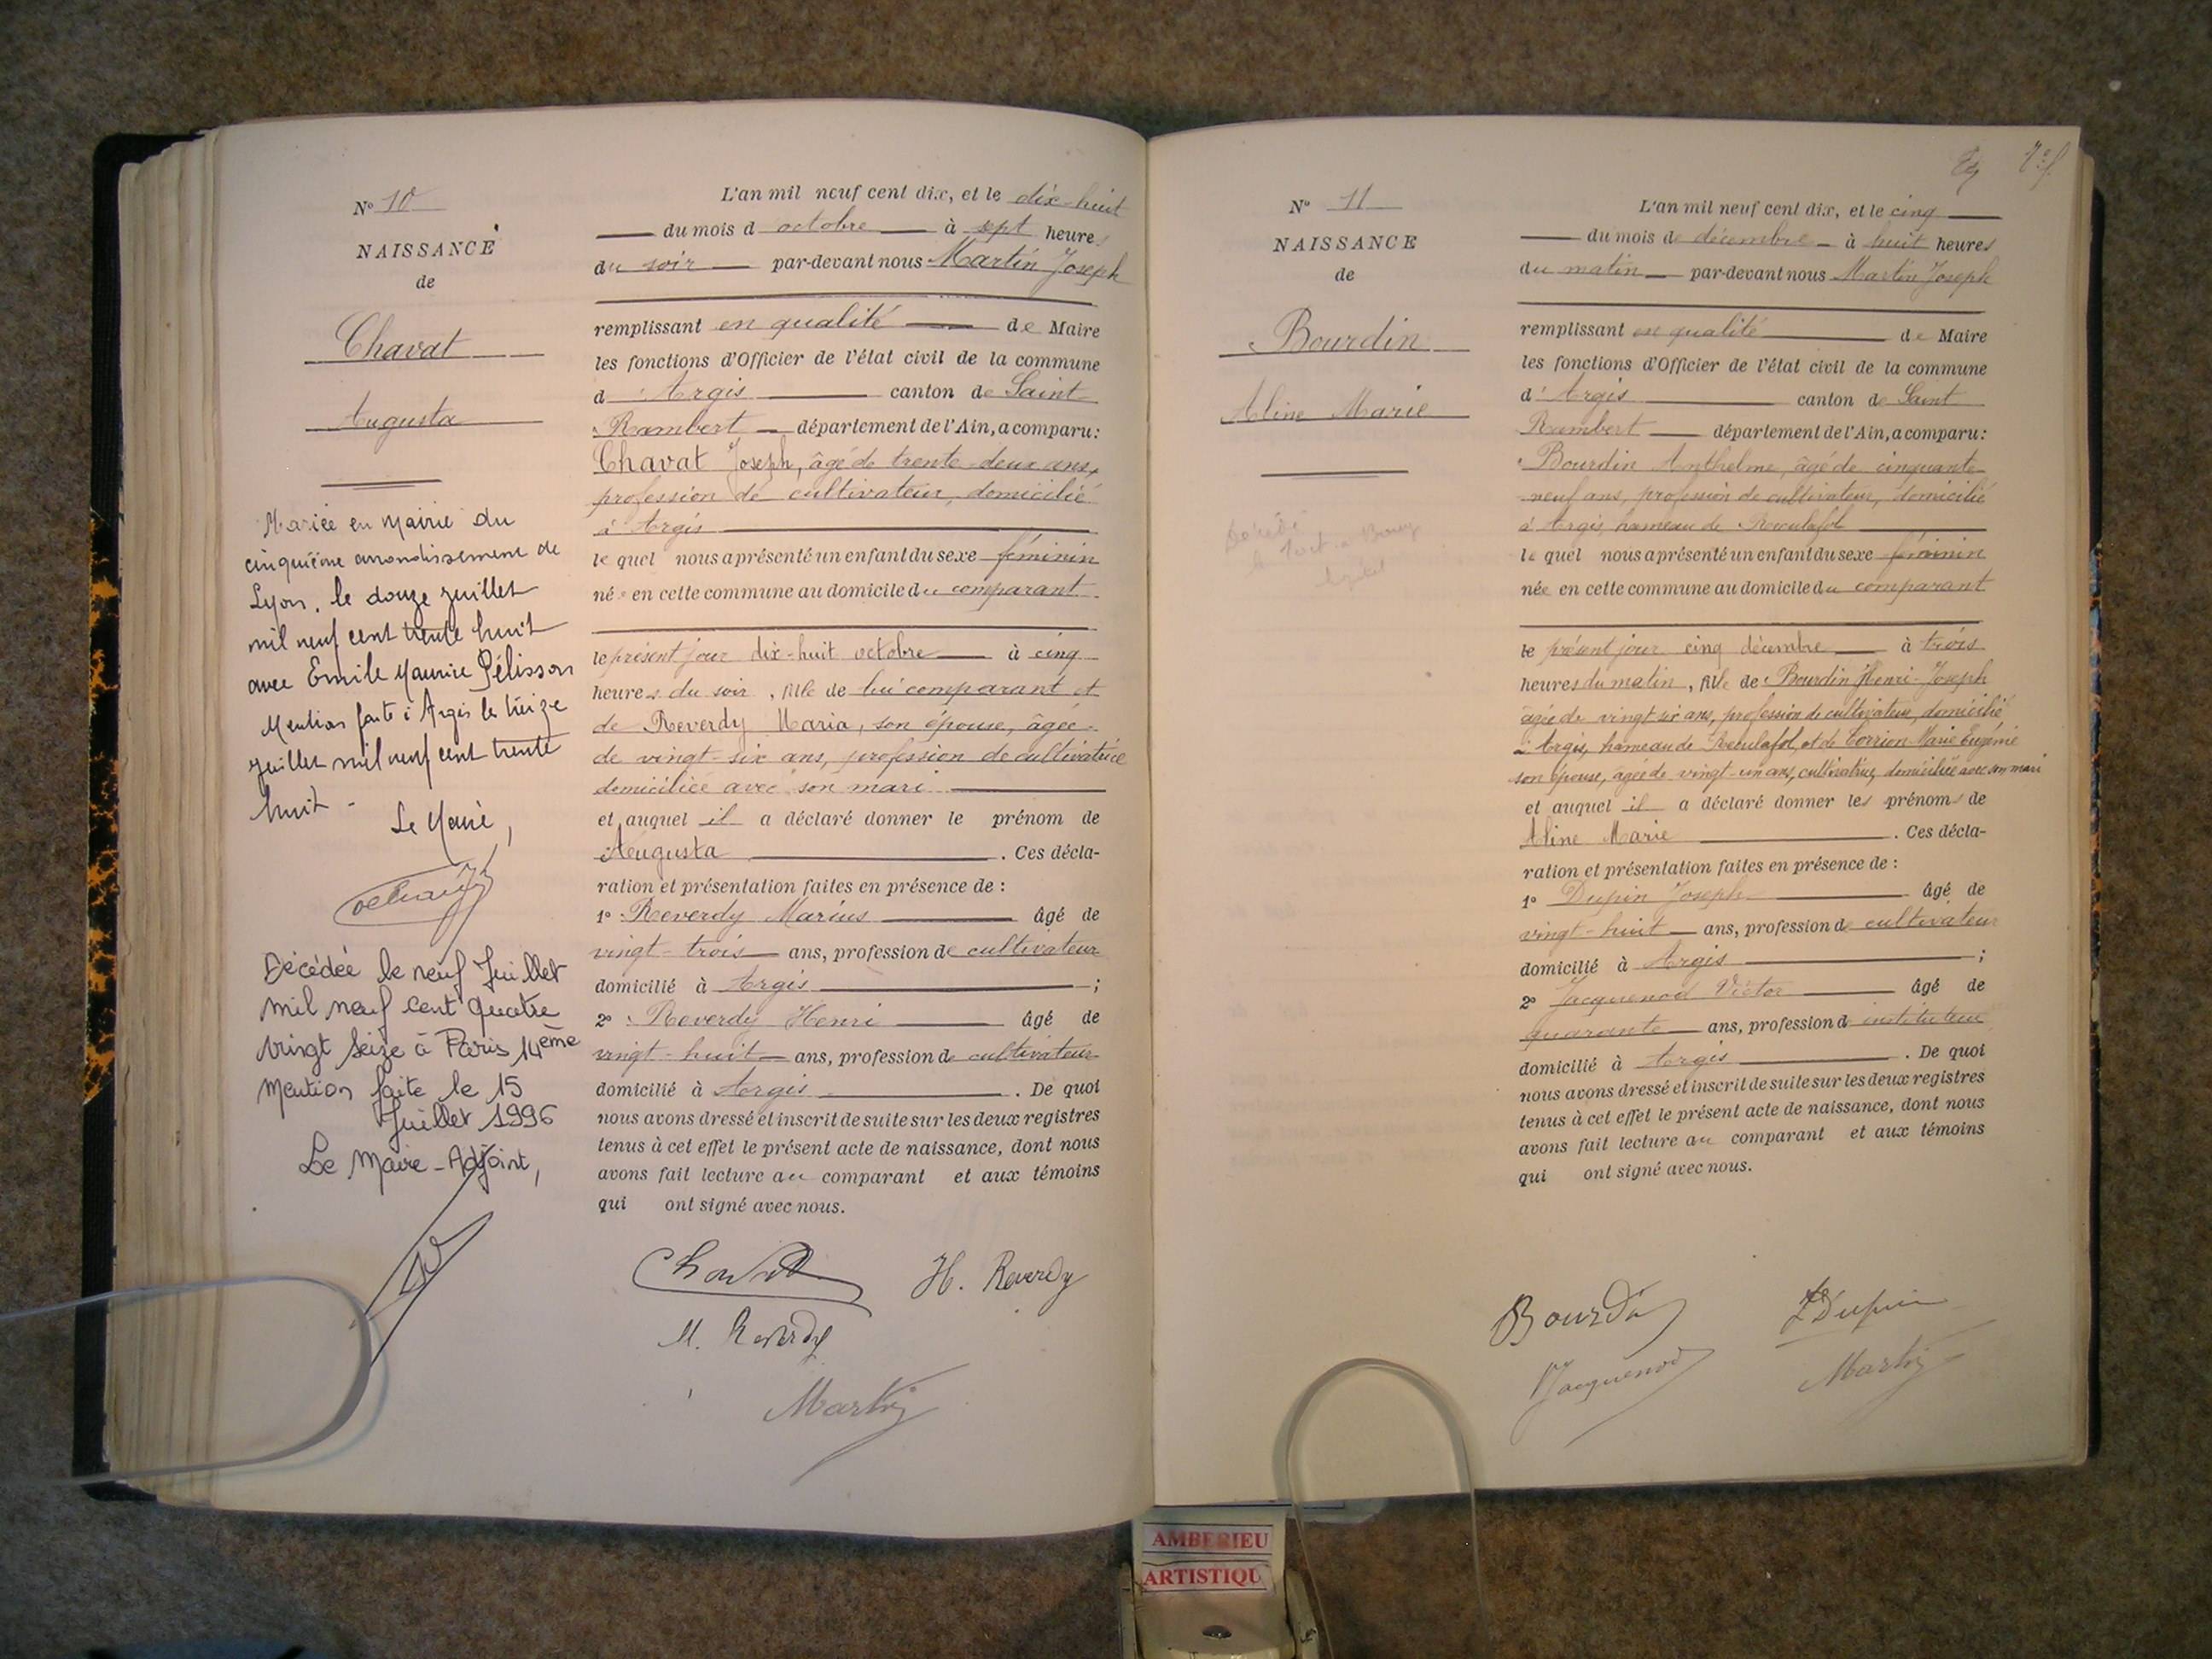 N° 10
NAISSANCE
de
Chavat
Augusta
Mariée en Mairie du
cinquième arrondissement de
Lyon, le douze juillet
mil neuf cent trente huit
avec Emile Maurice Pélisson
Mention faite à Argis le treize
juillet mil neuf cent trente
huit -
Le Maire,
Décédée le neuf Juillet
mil neuf cent quatre
vingt seize à Paris 14ème
Mention faite le 15
Juillet 1996
Le Maire-Adjoint,
L'an mil neuf cent dix, et le dix-huit
du mois d'octobre à sept heures
du soir par-devant nous Martin Joseph
remplissant en qualité de Maire
les fonctions d'Officier de l'état civil de la commune
d'Argis canton de Saint-
Rambert département de l'Ain, a comparu :
Chavat Joseph, âgé de trente-deux ans,
profession de cultivateur, domicilié
à Argis
le quel nous a présenté un enfant du sexe féminin
née en cette commune au domicile du comparant
le présent jour dix-huit octobre à cinq
heures du soir, fille de lui comparant et
de Reverdy Maria, son épouse, âgée
de vingt-six ans, profession de cultivatrice
domiciliée avec son mari
et auquel il a déclaré donner le prénom de
Augusta . Ces décla-
ration et présentation faites en présence de :
1° Reverdy Marius âgé de
vingt-trois ans, profession de cultivateur
domicilié à Argis ;
2° Reverdy Henri âgé de
vingt-huit ans, profession de cultivateur
domicilié à Argis . De quoi
nous avons dressé et inscrit de suite sur les deux registres
tenus à cet effet le présent acte de naissance, dont nous
avons fait lecture au comparant et aux témoins
qui ont signé avec nous.
Chavat H. Reverdy
M. Reverdy
Martin
N° 11
NAISSANCE
de
Bourdin
Aline Marie
L'an mil neuf cent dix, et le cinq
du mois de décembre à huit heures
du matin par-devant nous Martin Joseph
remplissant en qualité de Maire
les fonctions d'Officier de l'état civil de la commune
d'Argis canton de Saint
Rambert département de l'Ain, a comparu :
Bourdin Anthelme, âgé de cinquante-
neuf ans, profession de cultivateur, domicilié
à Argis, hameau de Reculafol
le quel nous a présenté un enfant du sexe féminin
née en cette commune au domicile du comparant
le présent jour cinq décembre à trois
heures du matin, fille de Bourdin Henri-Joseph
âgé de vingt six ans, profession de cultivateur, domicilié
à Argis, hameau de Reculafol, et de Torrion Marie Eugénie
son épouse, âgée de vingt-un ans, cultivatrice, domiciliée avec son mari
et auquel il a déclaré donner les prénoms de
Aline Marie . Ces décla-
ration et présentation faites en présence de :
1° Dupin Joseph âgé de
vingt-huit ans, profession de cultivateur
domicilié à Argis ;
2° Jacquenod Victor âgé de
quarante ans, profession d'instituteur
domicilié à Argis . De quoi
nous avons dressé et inscrit de suite sur les deux registres
tenus à cet effet le présent acte de naissance, dont nous
avons fait lecture au comparant et aux témoins
qui ont signé avec nous.
Bourdin J Dupin
V Jacquenod Martin
AMBERIEU
ARTISTIQU